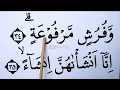 وَّفُرُشٍ مَّرْفُوْعَةٍ ۝٣٤
اِنَّاۤ اَنْشَاْنٰهُنَّ اِنْشَآءً ۙ۝٣٥